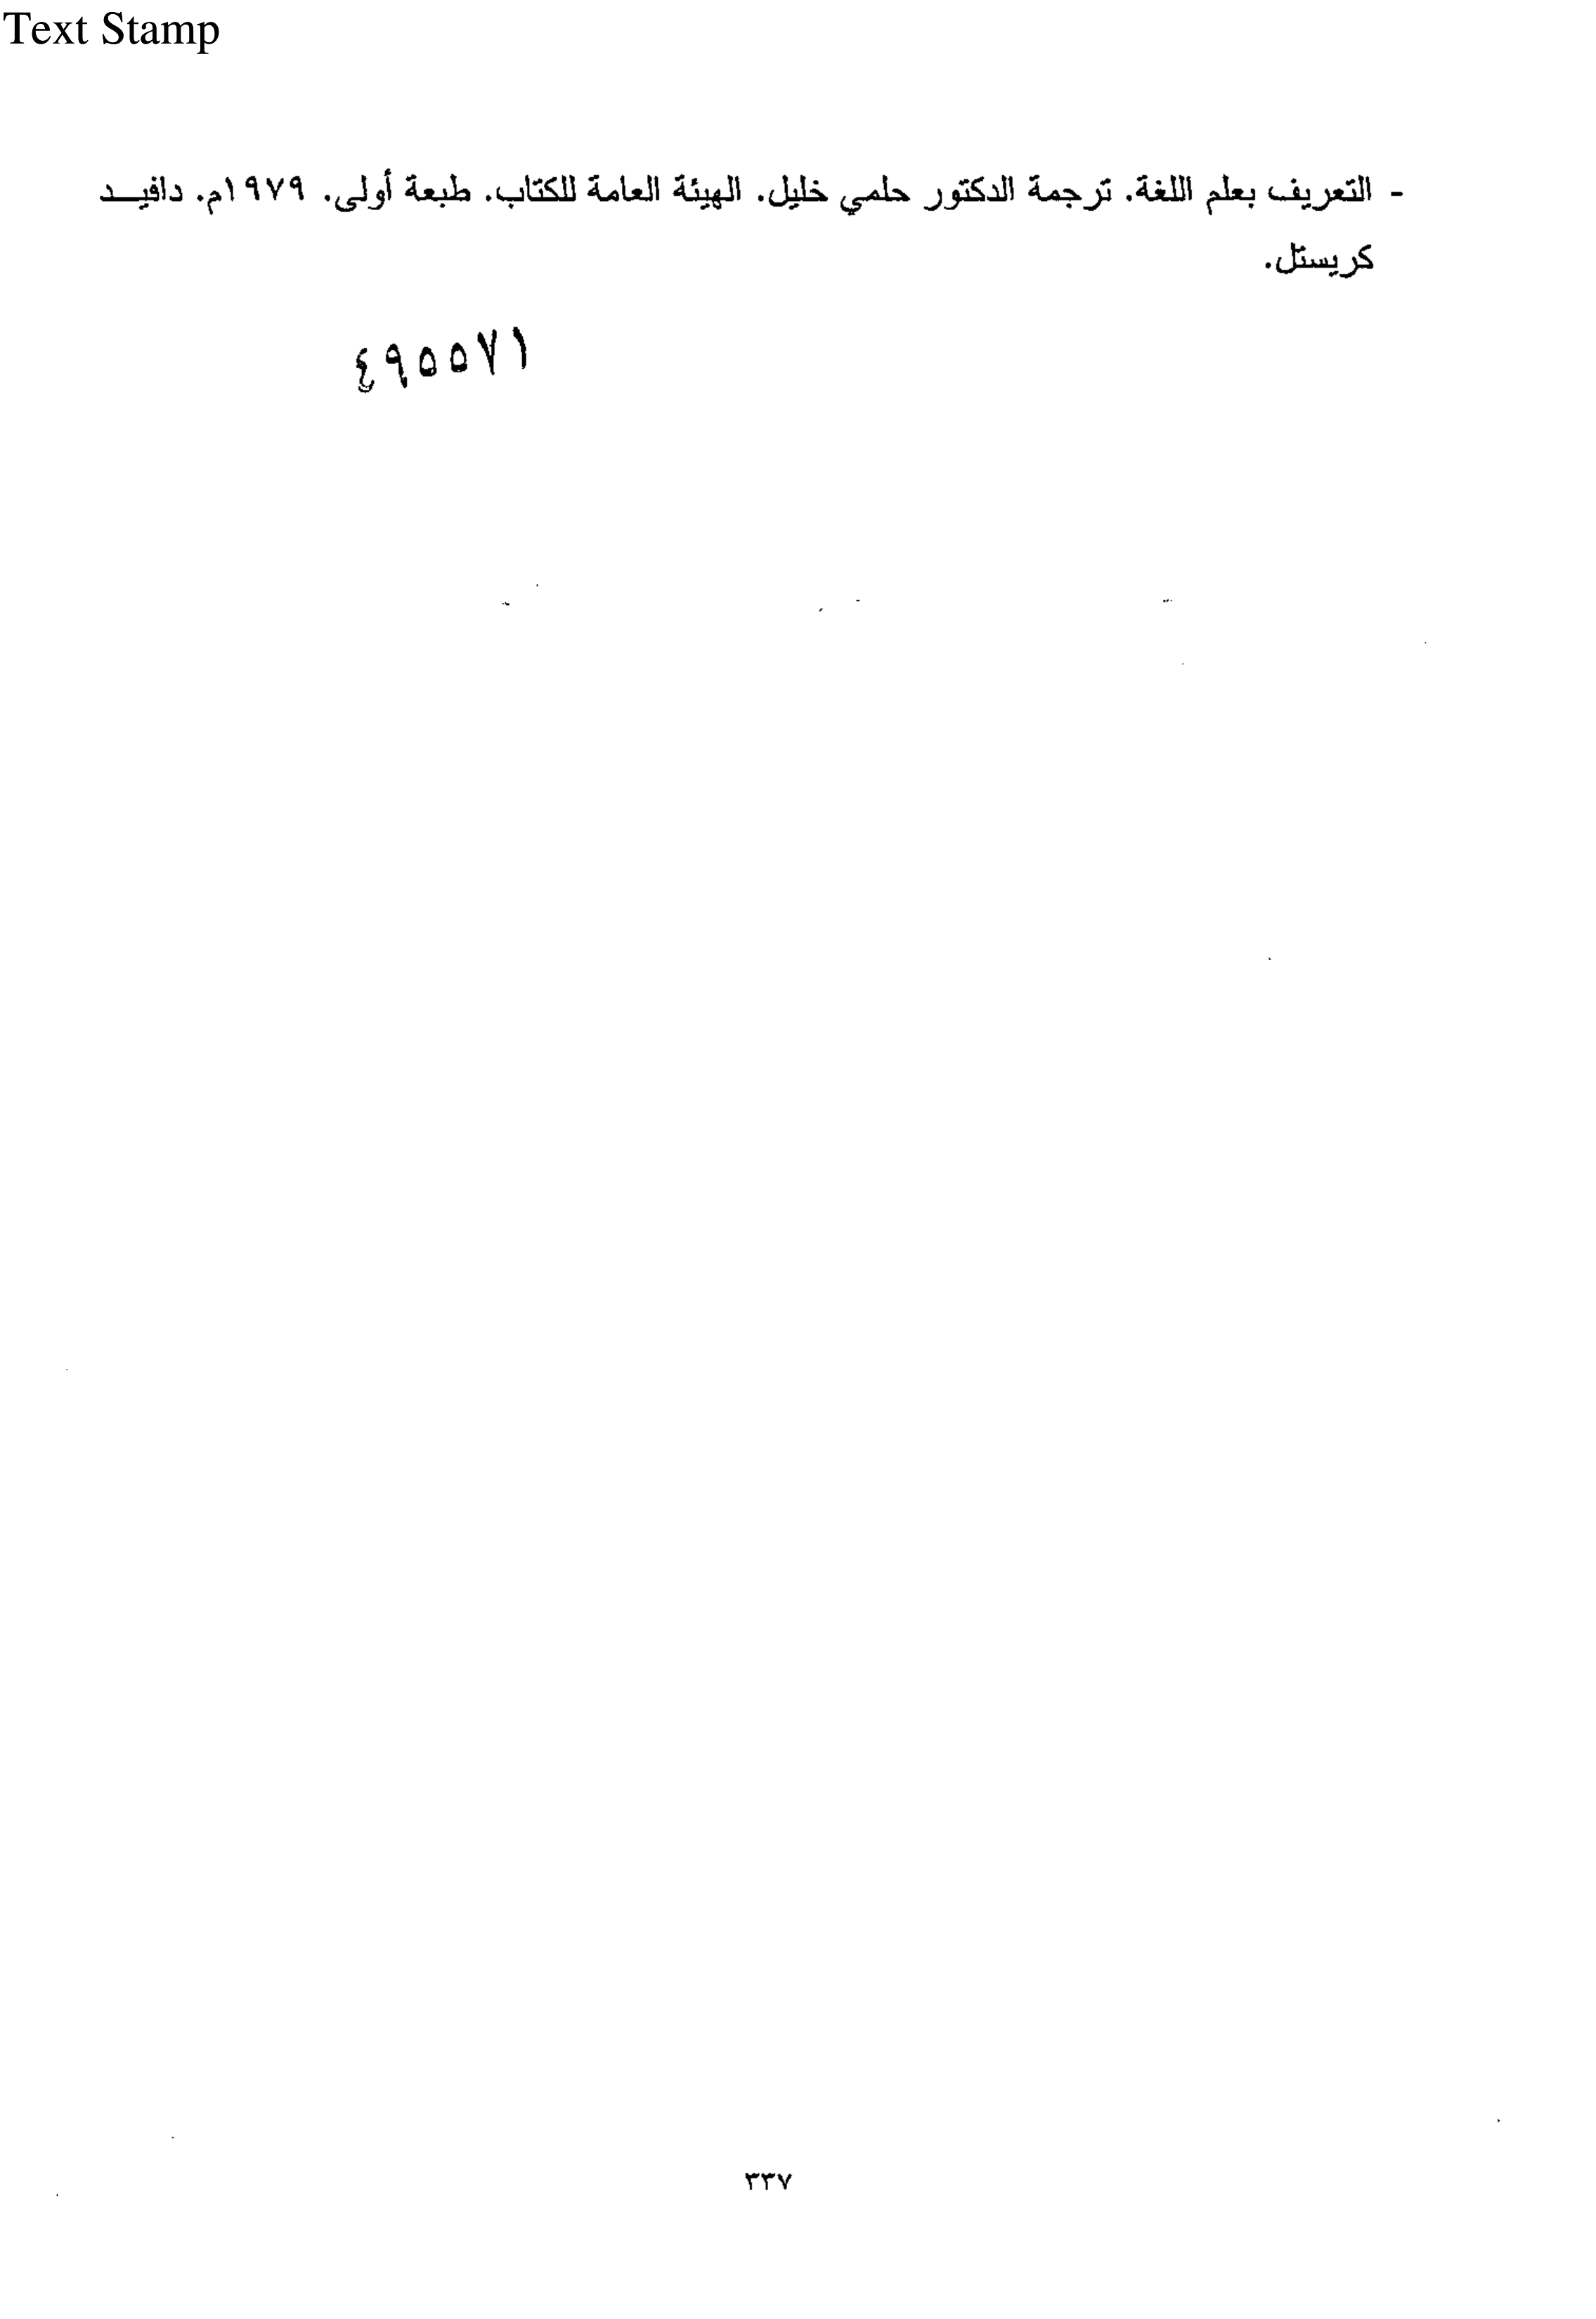 Text Stamp
- التعريف بعلم اللغة. ترجمة الدكتور حلمي خليل. الهيئة العامة للكتاب. طبعة أولى. ١٩٧٩م. دافيـــد
كريستل.
٤٩٥٥٧١
٣٣٧